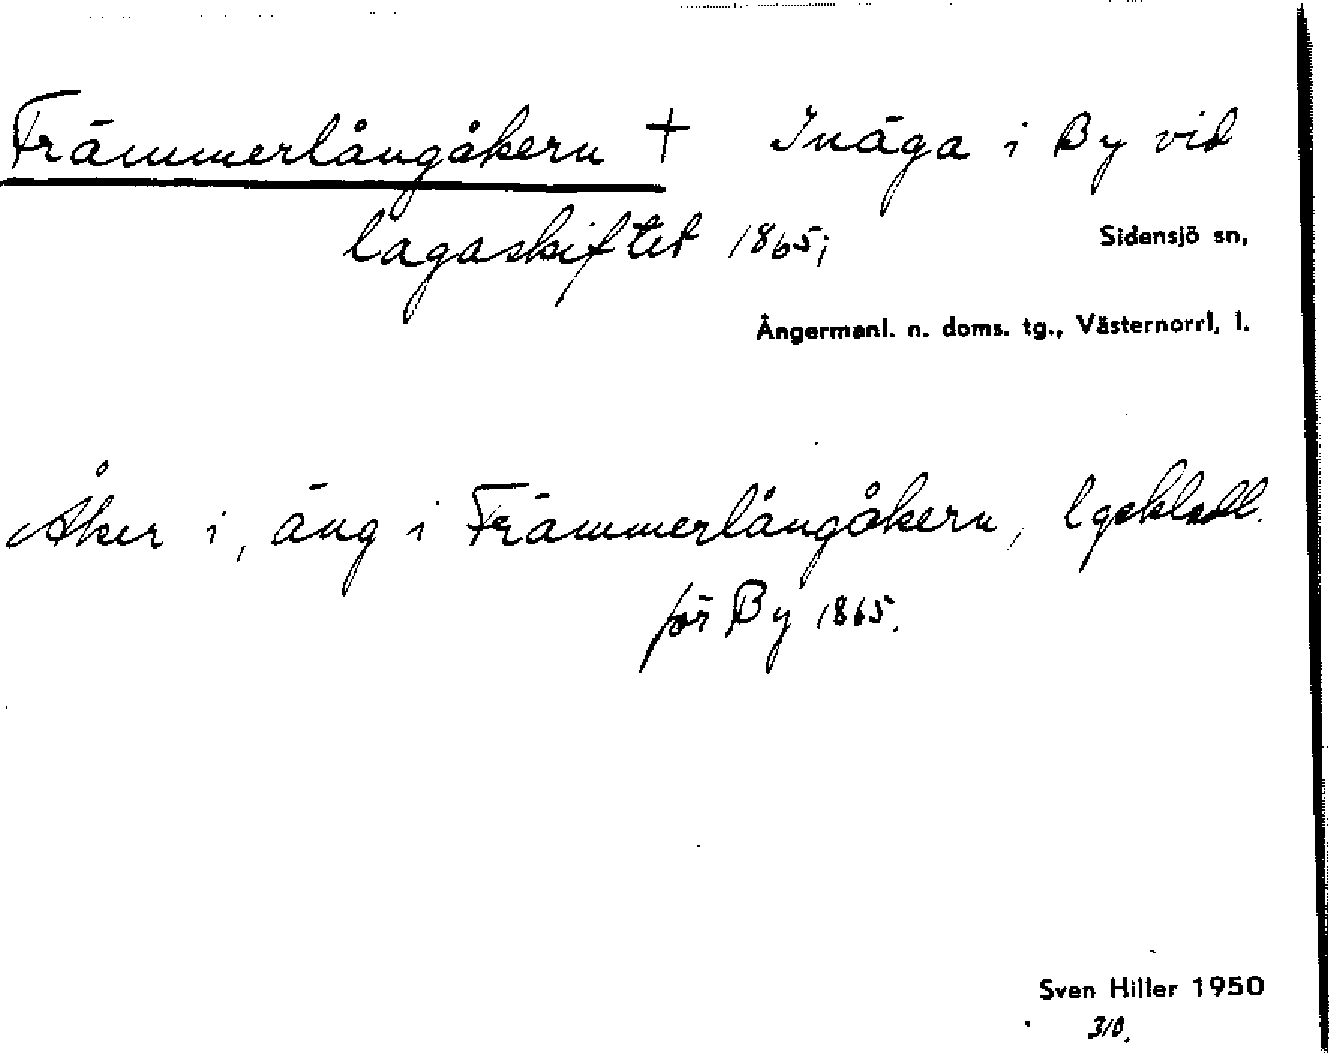 Främmerlångåkern † Inäga i By vid
lagaskiftet 1865;
Sidensjö sn,
Ångermanl. n. doms. tg., Västernorrl. l.
Åker i, äng i Främmerlångåkern,
för By 1865.
Sven Hiller 1950
310.